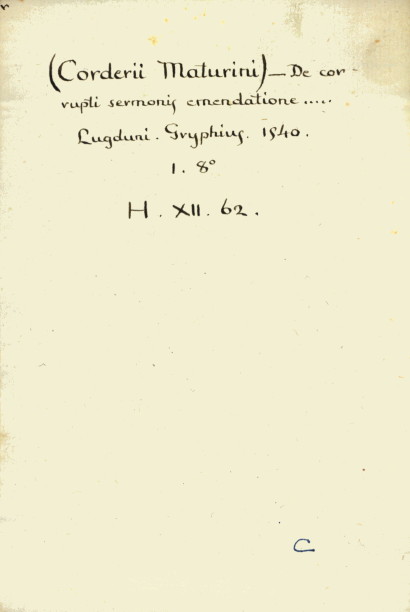 (Corderii Maturini) — De cor-
rupti sermonis emendatione .....
Lugduni. Gryphius. 1540.
1. 8°
H. XII. 62.
C